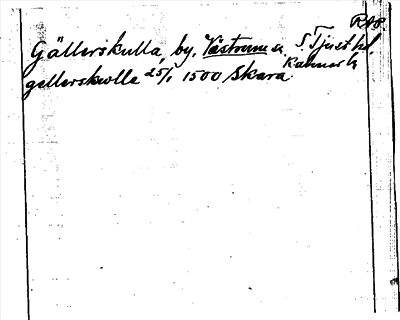 RAP.
Gällerskulla, by, Västrum s. S. Tjust hd,
Kalmar l.
gellerskwlle 25/1 1500 Skara